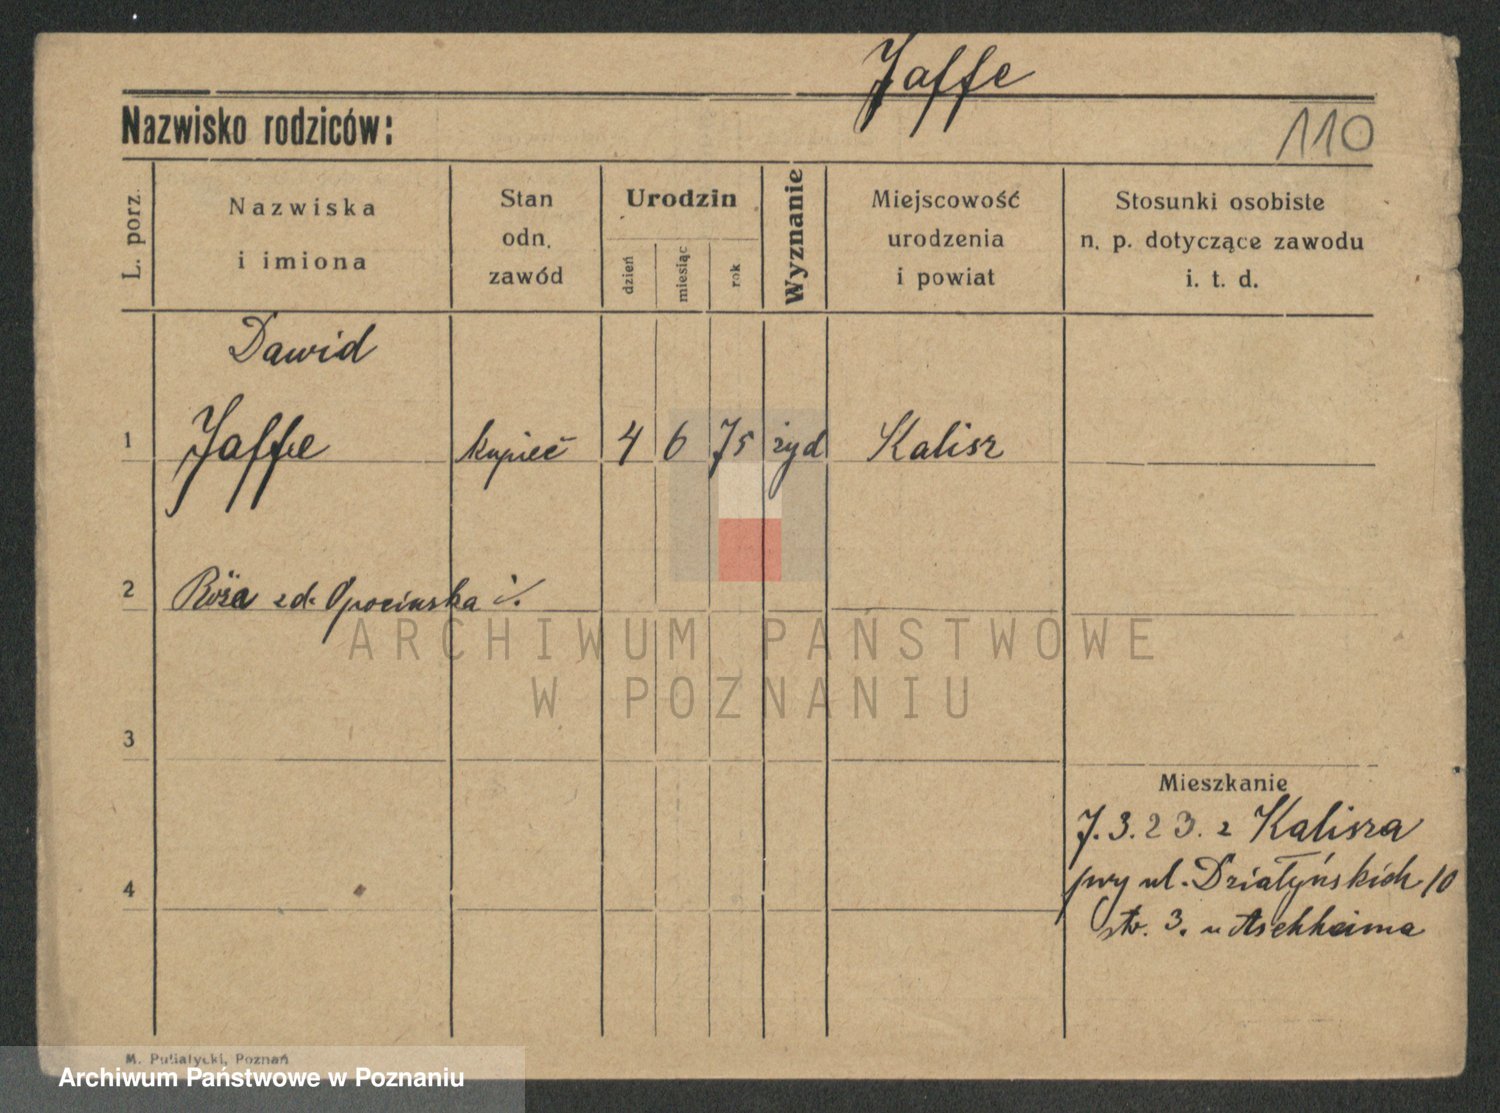 Jaffe
Nazwisko rodziców:
110
L. porz.
Nazwiska
i imiona
Stan
odn.
zawód
Urodzin
dzień
miesiąc
rok
Wyznanie
Miejscowość
urodzenia
i powiat
Stosunki osobiste
n. p. dotyczące zawodu
i. t. d.
Dawid
1 Jaffe kupiec 4 6 75 żyd Kalisz
2 Róża zd. Opocińska
ARCHIWUM PAŃSTWOWE
W POZNANIU
3
Mieszkanie
7.3.23. z Kalisza
przy ul. Działyńskich 10
4
str. 3. u Aschheima
M. Putiatycki, Poznań
Archiwum Państwowe w Poznaniu